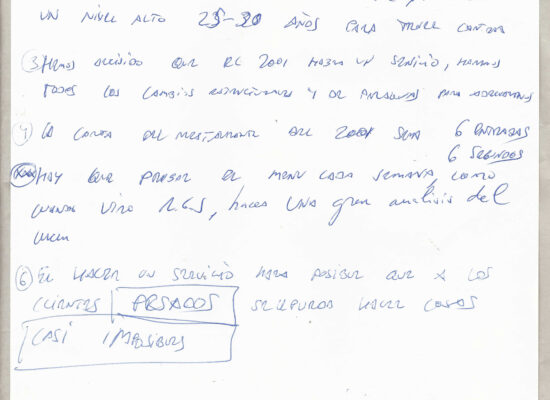 UN NIVEL ALTO 25-30 AÑOS PARA
③ HEMOS DECIDIDO QUE EL 2001 HABRA UN SERVICIO, HAREMOS
TODOS LOS CAMBIOS ESTRUCTURALES Y DE PARA
④ LA CARTA DEL RESTAURANTE DEL 2001 SERA 6 ENTRADAS
6 SEGUNDOS
HAY QUE PENSAR EL MENU CADA SEMANA, COMO
CUANDO VINO, HACER UNA gran analisis del
⑥ EL HACER UN SERVICIO HARA POSIBLE QUE A LOS
CLIENTES PESADOS SE LES PUEDA HACER COSAS
CASI IMPOSIBLES